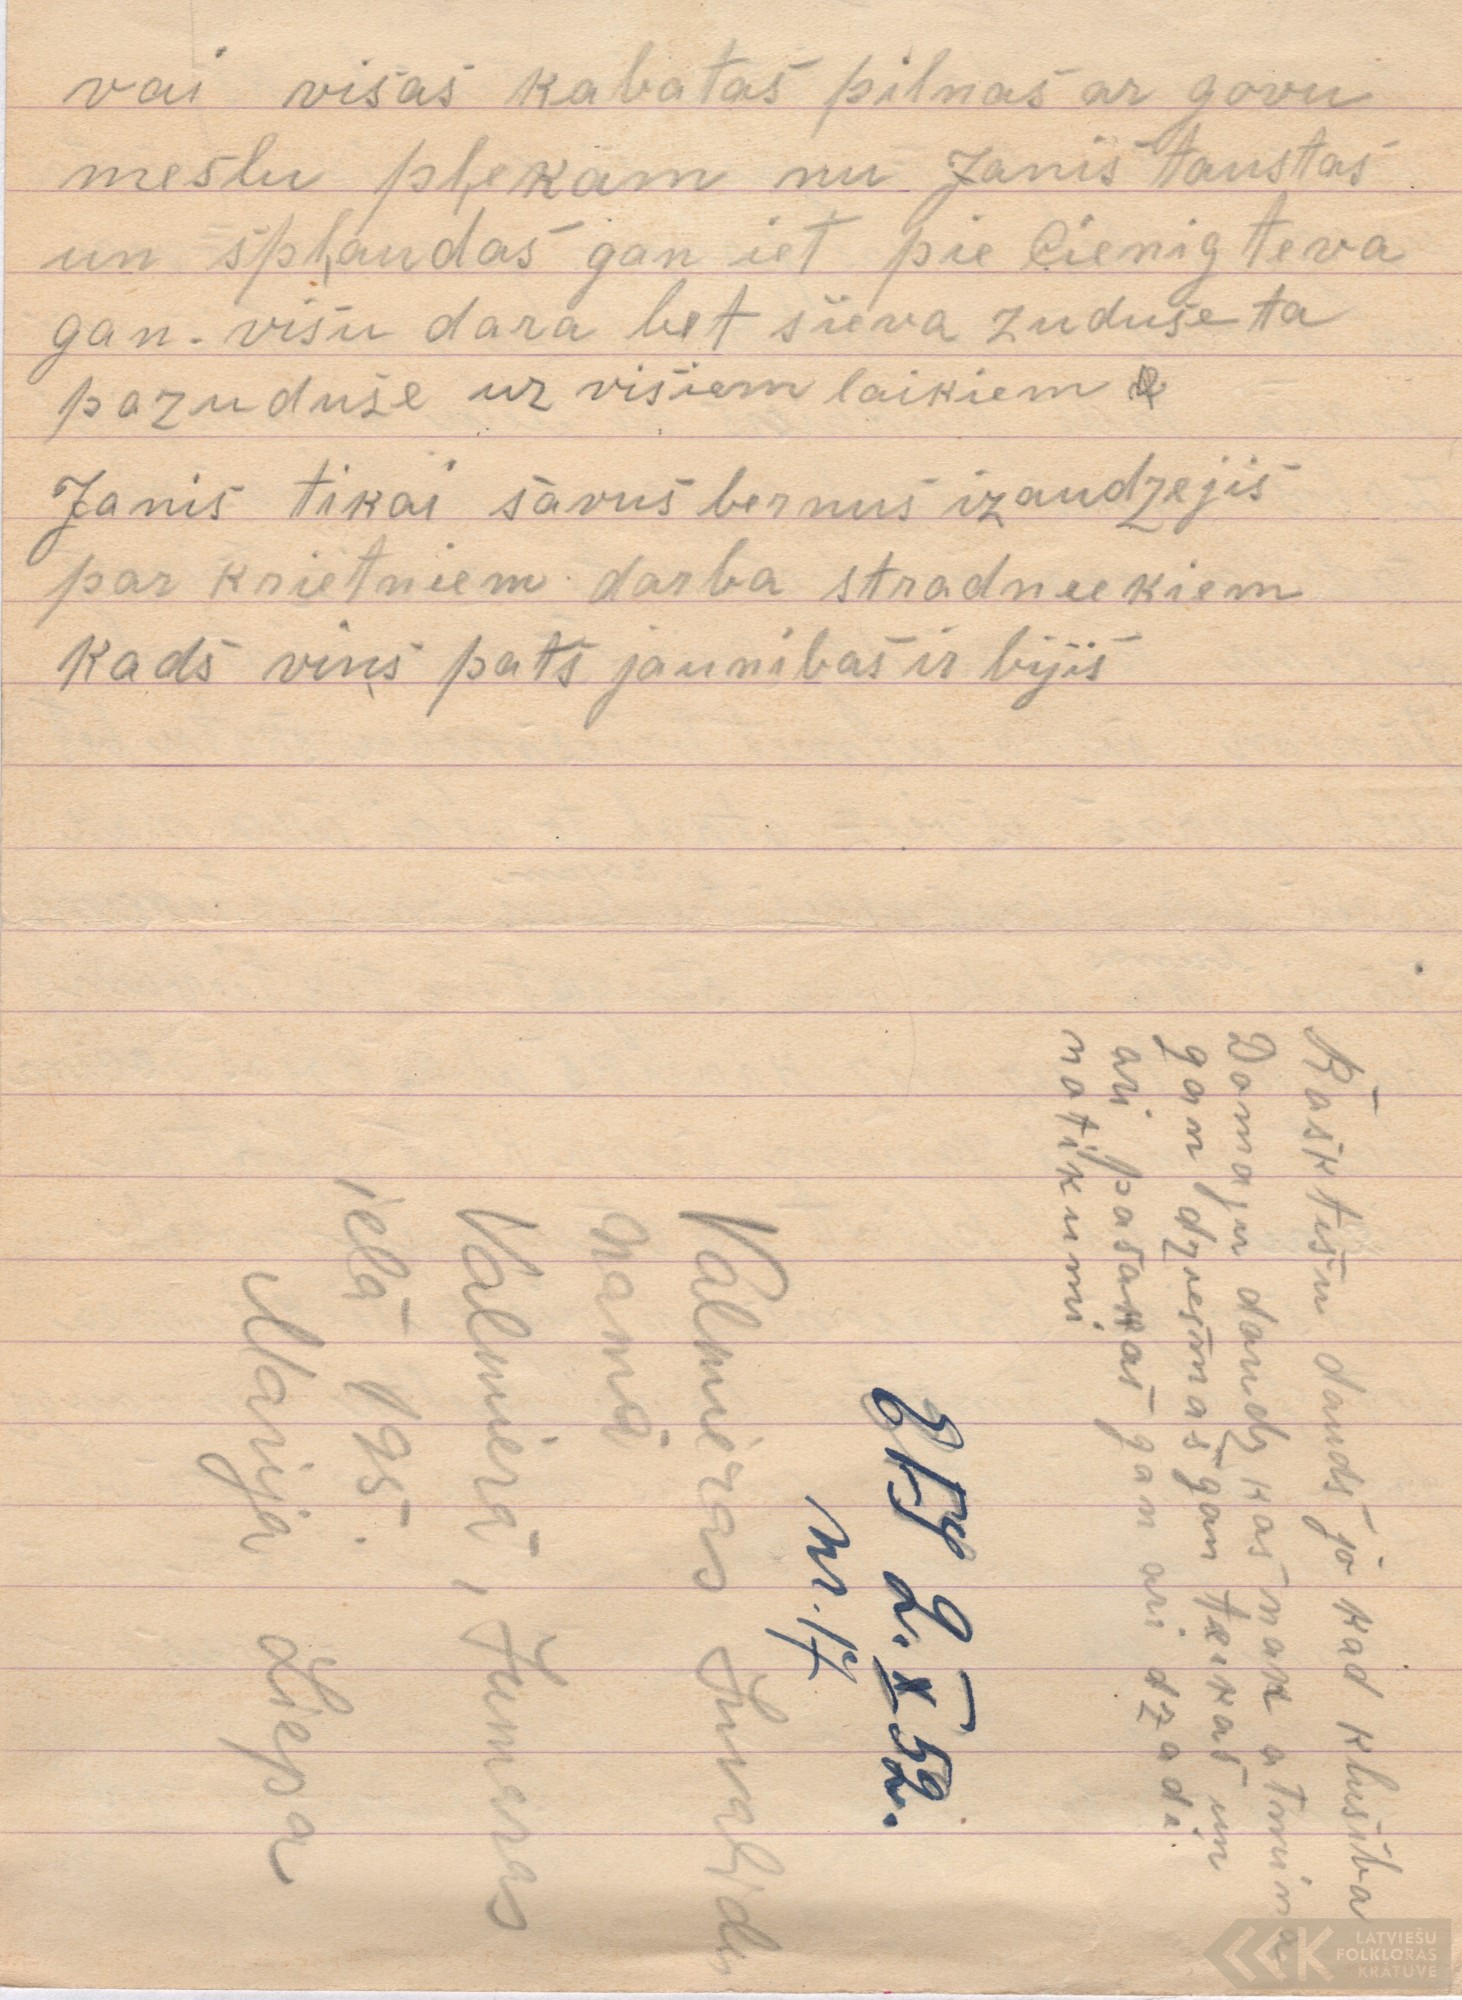 vai visas kabatas pilnas ar govu
meslu pļekam nu Janis taustas
un spļaudas gan iet pie Cienig teva
gan. visu dara bet sieva zuduse ta
pazuduse uz visiem laikiem
Janis tikai savus bernus izaudzejis
par krietniem darba stradneekiem
kads viņs pats jaunibas ir bijis
Rakstisu daudz jo kad klusiba
Domaju daudz kas nak atmina
gan dziesmas gan teikas un
ari pasakas gan ari dzadi
notikumi
ZFI 2.X 52.
nr. 17
Valmieras Invalidu
namā
Valmierā, Jumaras
ielā 195.
Marija Liepa
LATVIEŠU
FOLKLORAS
KRĀTUVE